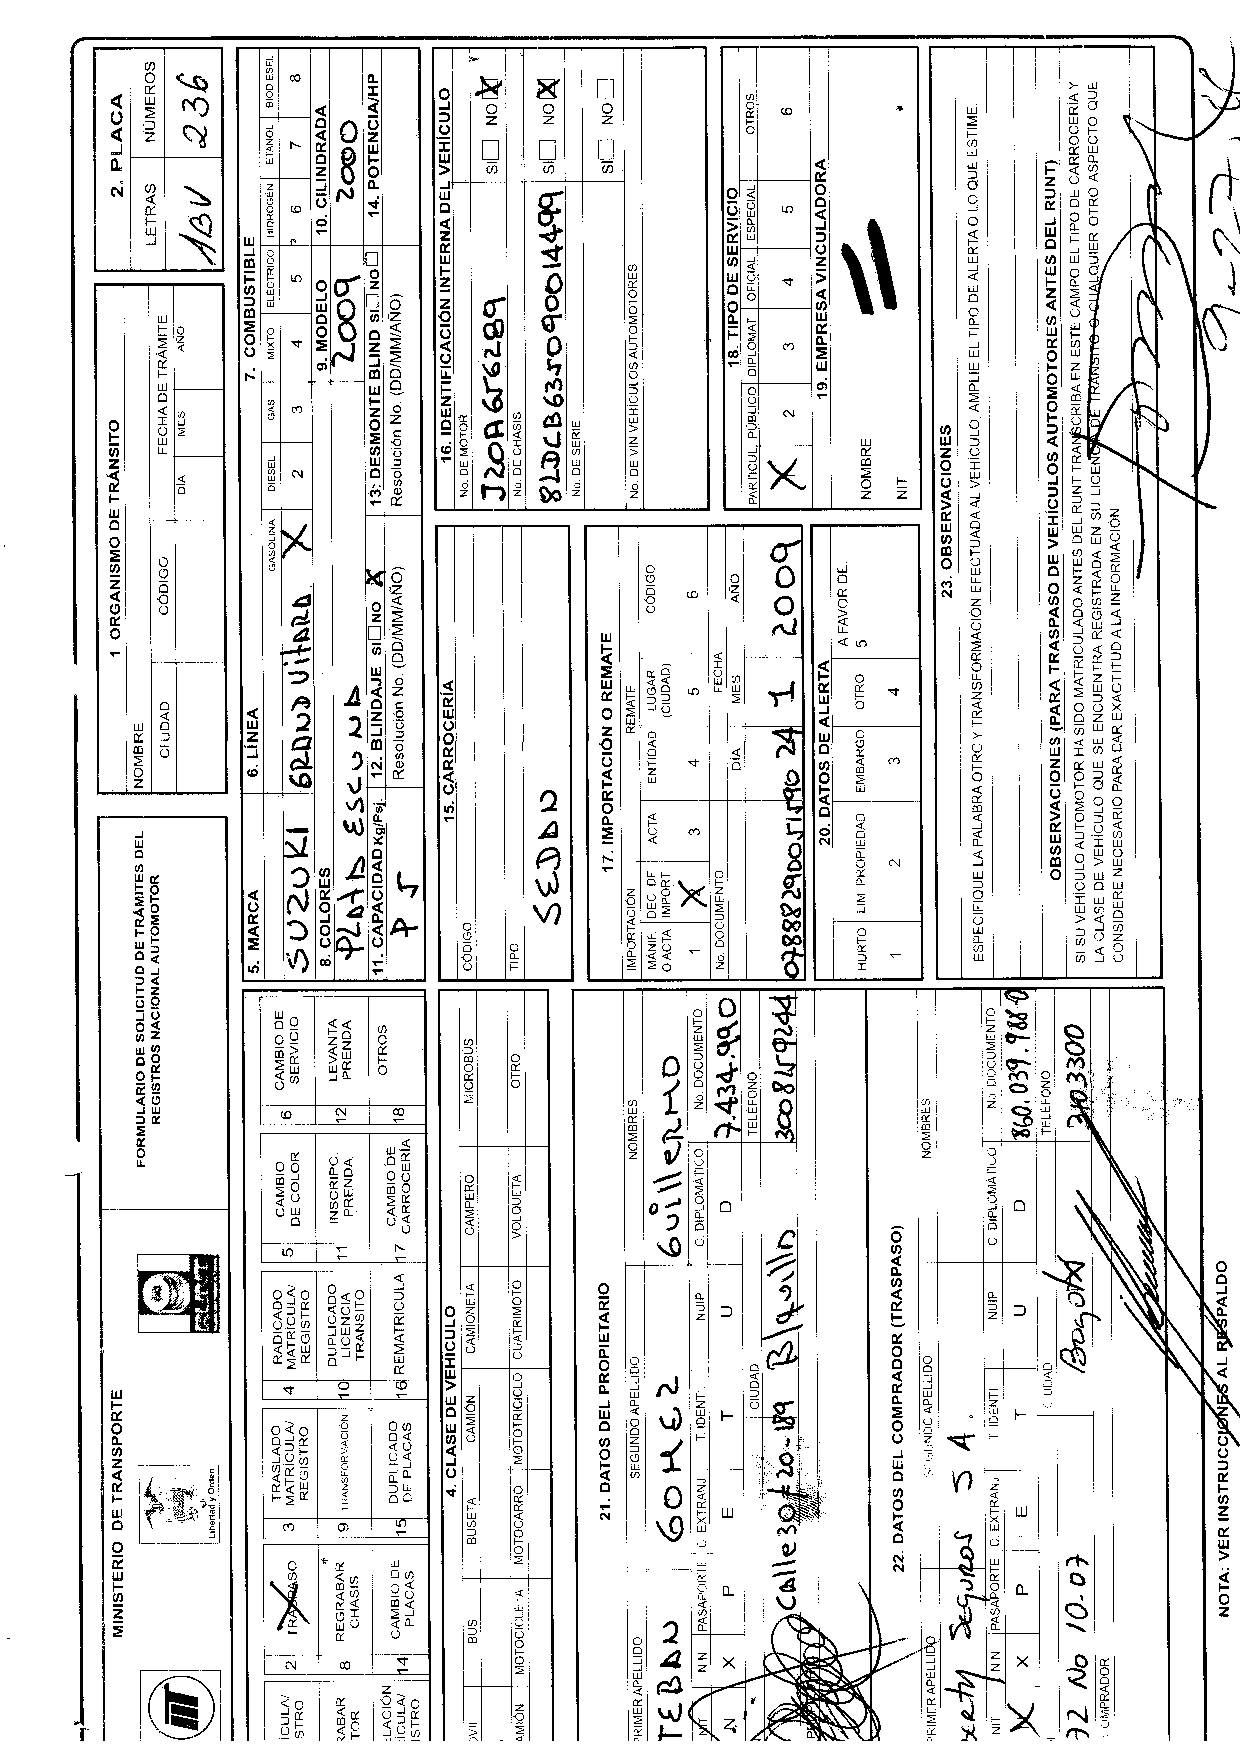 MINISTERIO DE TRANSPORTE
Libertad y Orden
FORMULARIO DE SOLICITUD DE TRÁMITES DEL
REGISTROS NACIONAL AUTOMOTOR
1 ORGANISMO DE TRÁNSITO
NOMBRE
CIUDAD
CÓDIGO
FECHA DE TRÁMITE
DÍA MES AÑO
2. PLACA
LETRAS NÚMEROS
ABV 236
2 TRASPASO X
3 TRASLADO MATRÍCULA/ REGISTRO
4 RADICADO MATRÍCULA/ REGISTRO
5 CAMBIO DE COLOR
6 CAMBIO DE SERVICIO
8 REGRABAR CHASIS
9 TRANSFORMACIÓN
10 DUPLICADO LICENCIA TRANSITO
11 INSCRIPC. PRENDA
12 LEVANTA PRENDA
14 CAMBIO DE PLACAS
15 DUPLICADO DE PLACAS
16 REMATRICULA
17 CAMBIO DE CARROCERÍA
18 OTROS
4. CLASE DE VEHÍCULO
BUS BUSETA CAMIÓN CAMIONETA CAMPERO MICROBÚS
MOTOCICLETA MOTOCARRO MOTOTRICICLO CUATRIMOTO VOLQUETA OTRO
5. MARCA
SUZUKI
6. LÍNEA
GRAND VITARA
7. COMBUSTIBLE
GASOLINA DIESEL GAS MIXTO ELECTRICO HIDROGEN ETANOL BIODIESEL
X 2 3 4 5 6 7 8
8. COLORES
PLATA ESCUNA
9. MODELO
2009
10. CILINDRADA
2000
11. CAPACIDAD Kg/Psj.
P 5
12. BLINDAJE SI NO X
Resolución No. (DD/MM/AÑO)
13: DESMONTE BLIND SI NO
Resolución No. (DD/MM/AÑO)
14. POTENCIA/HP
15. CARROCERÍA
CÓDIGO
TIPO
SEDAN
16. IDENTIFICACIÓN INTERNA DEL VEHÍCULO
No. DE MOTOR
J20A656289 SI NO X
No. DE CHASIS
8LDCB635090014499 SI NO X
No. DE SERIE
SI NO
No. DE VIN VEHÍCULOS AUTOMOTORES
17. IMPORTACIÓN O REMATE
IMPORTACIÓN REMATE
MANIF. O ACTA DEC. DE IMPORT ACTA ENTIDAD LUGAR (CIUDAD) CÓDIGO
1 X 3 4 5 6
No. DOCUMENTO FECHA
DÍA MES AÑO
24 1 2009
18. TIPO DE SERVICIO
PARTICUL. PÚBLICO DIPLOMAT OFICIAL ESPECIAL OTROS
X 2 3 4 5 6
19. EMPRESA VINCULADORA
NOMBRE
NIT
20. DATOS DE ALERTA
HURTO LIM PROPIEDAD EMBARGO OTRO A FAVOR DE.
1 2 3 4 5
21. DATOS DEL PROPIETARIO
PRIMER APELLIDO SEGUNDO APELLIDO NOMBRES
TEBAN GOMEZ GUILLERMO
NIT N.N PASAPORTE C. EXTRANJ T.IDENTI NUIP C. DIPLOMATICO No. DOCUMENTO
N X P E T U D 7.434.990
CIUDAD TELÉFONO
Calle 30 # 20-189 B/quilla 3008459244
22. DATOS DEL COMPRADOR (TRASPASO)
PRIMER APELLIDO SEGUNDO APELLIDO NOMBRES
berty Seguros S A.
NIT N N PASAPORTE C. EXTRANJ T IDENTI NUIP C. DIPLOMATICO No DOCUMENTO
X X P E T U D 860.039.988-0
CIUDAD TELÉFONO
72 No 10-07 Bogota 3103300
COMPRADOR
23. OBSERVACIONES
ESPECIFIQUE LA PALABRA OTRO Y TRANSFORMACION EFECTUADA AL VEHÍCULO AMPLIE EL TIPO DE ALERTA O LO QUE ESTIME
OBSERVACIONES (PARA TRASPASO DE VEHÍCULOS AUTOMOTORES ANTES DEL RUNT)
SI SU VEHÍCULO AUTOMOTOR HA SIDO MATRICULADO ANTES DEL RUNT TRANSCRIBA EN ESTE CAMPO EL TIPO DE CARROCERÍA Y
LA CLASE DE VEHÍCULO QUE SE ENCUENTRA REGISTRADA EN SU LICENCIA DE TRANSITO O CUALQUIER OTRO ASPECTO QUE
CONSIDERE NECESARIO PARA DAR EXACTITUD A LA INFORMACIÓN
NOTA: VER INSTRUCCIONES AL RESPALDO